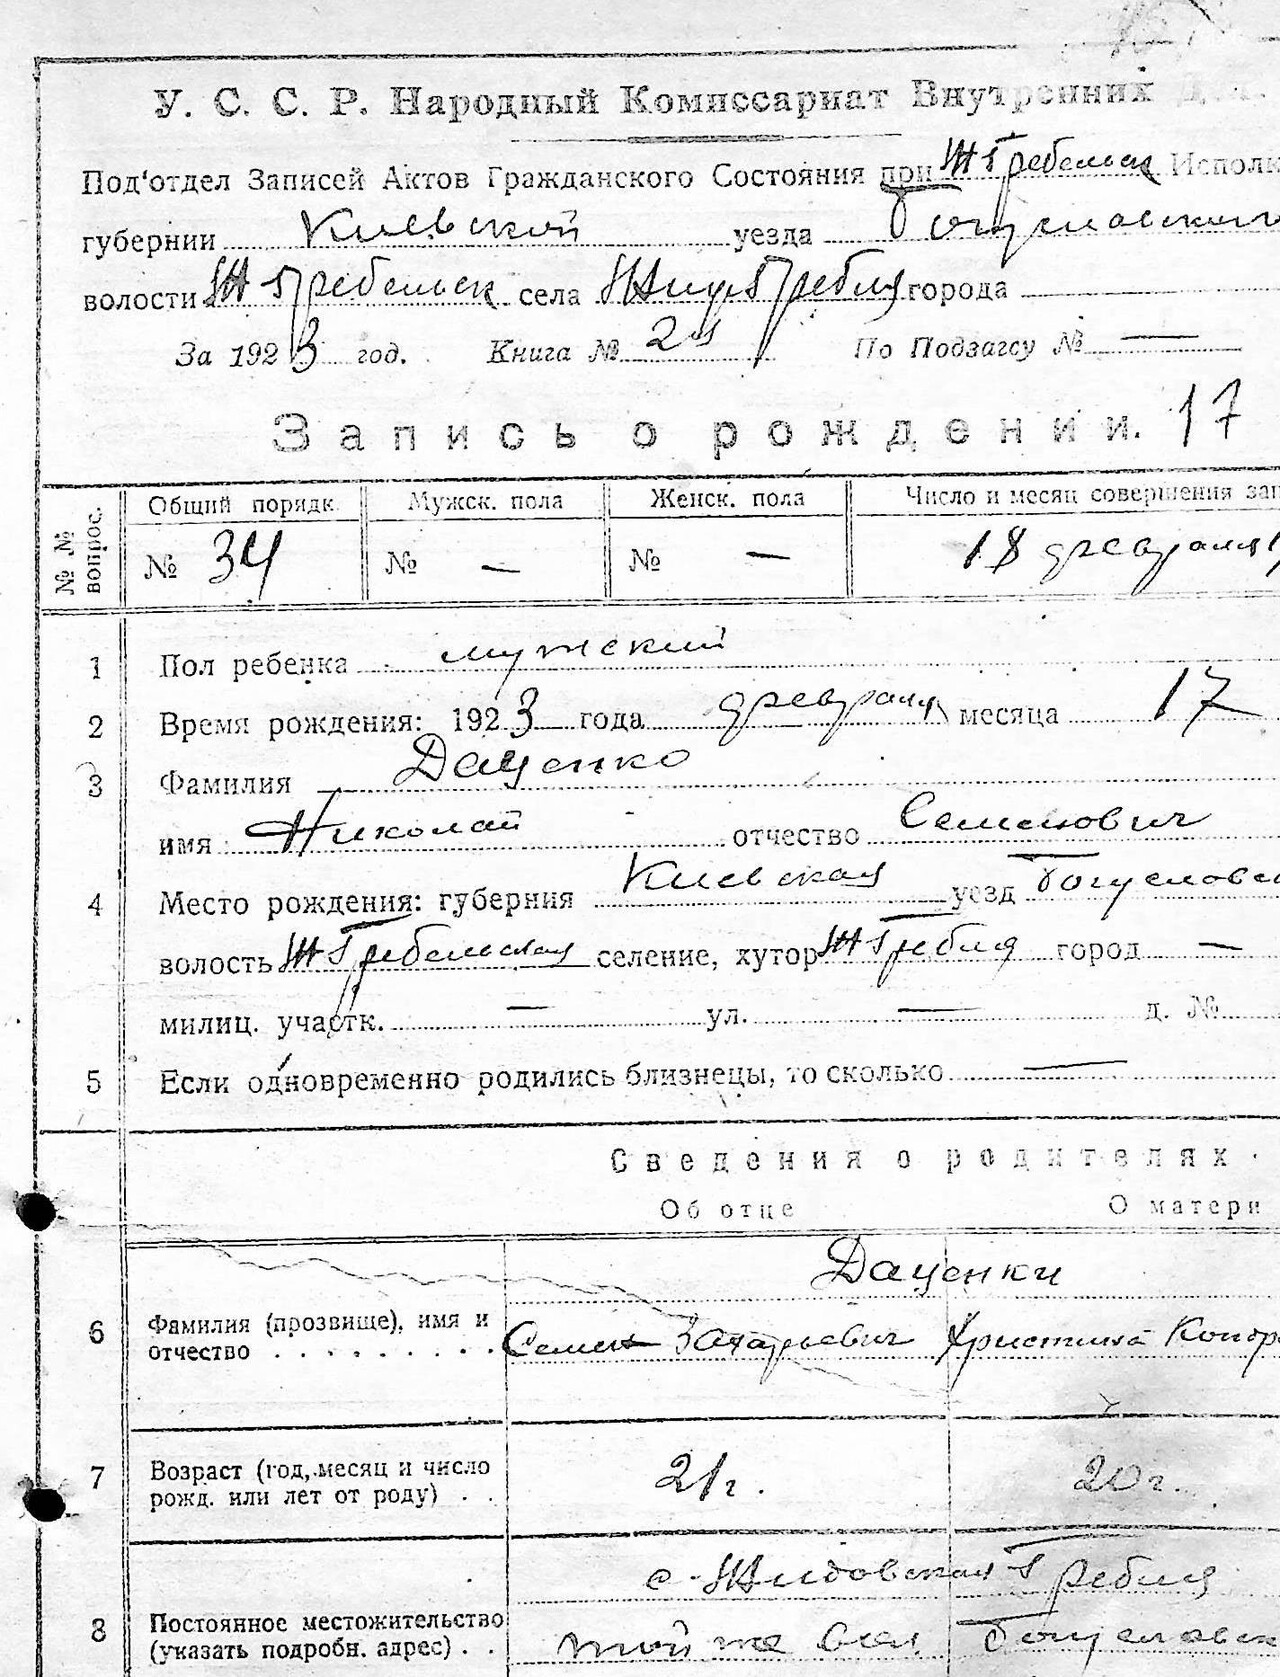 У. С. С. Р. Народный Комиссариат Внутренних Дел.
Под'отдел Записей Актов Гражданского Состояния при Ж Гребельск Исполк
губернии Киевской уезда Богуславского
волости Ж Гребельск села Жид Гребля города
За 1923 год. Книга № По Подзагсу № —
Запись о рождении. 17
№№ вопрос. Общий порядк. Мужск. пола Женск. пола Число и месяц совершения зап
№ 34 № — № — 18 февраля
1 Пол ребенка мужский
2 Время рождения: 1923 года февраля месяца 17
3 Фамилия Даценко
имя Николай отчество Семенович
4 Место рождения: губерния Киевская уезд Богуславск
волость Ж Гребельская селение, хутор Ж Гребля город —
милиц. участк. — ул. — д. №
5 Если одновременно родились близнецы, то сколько —
Сведения о родителях.
Об отце О матери
Даценки
6 Фамилия (прозвище), имя и
отчество . . . . . . . . . Семен Захарьевич Христина
7 Возраст (год, месяц и число
рожд. или лет от роду) . . 21 г. 20 г.
с. Жидовская Гребля
8 Постоянное местожительство
(указать подробн. адрес) . . той же Богуславск